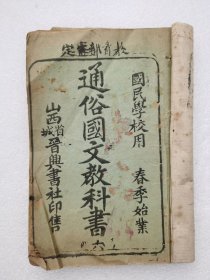 教育部審定
國民學校用 春季始業
通俗國文教科書
山西省城晉興書社印售
六